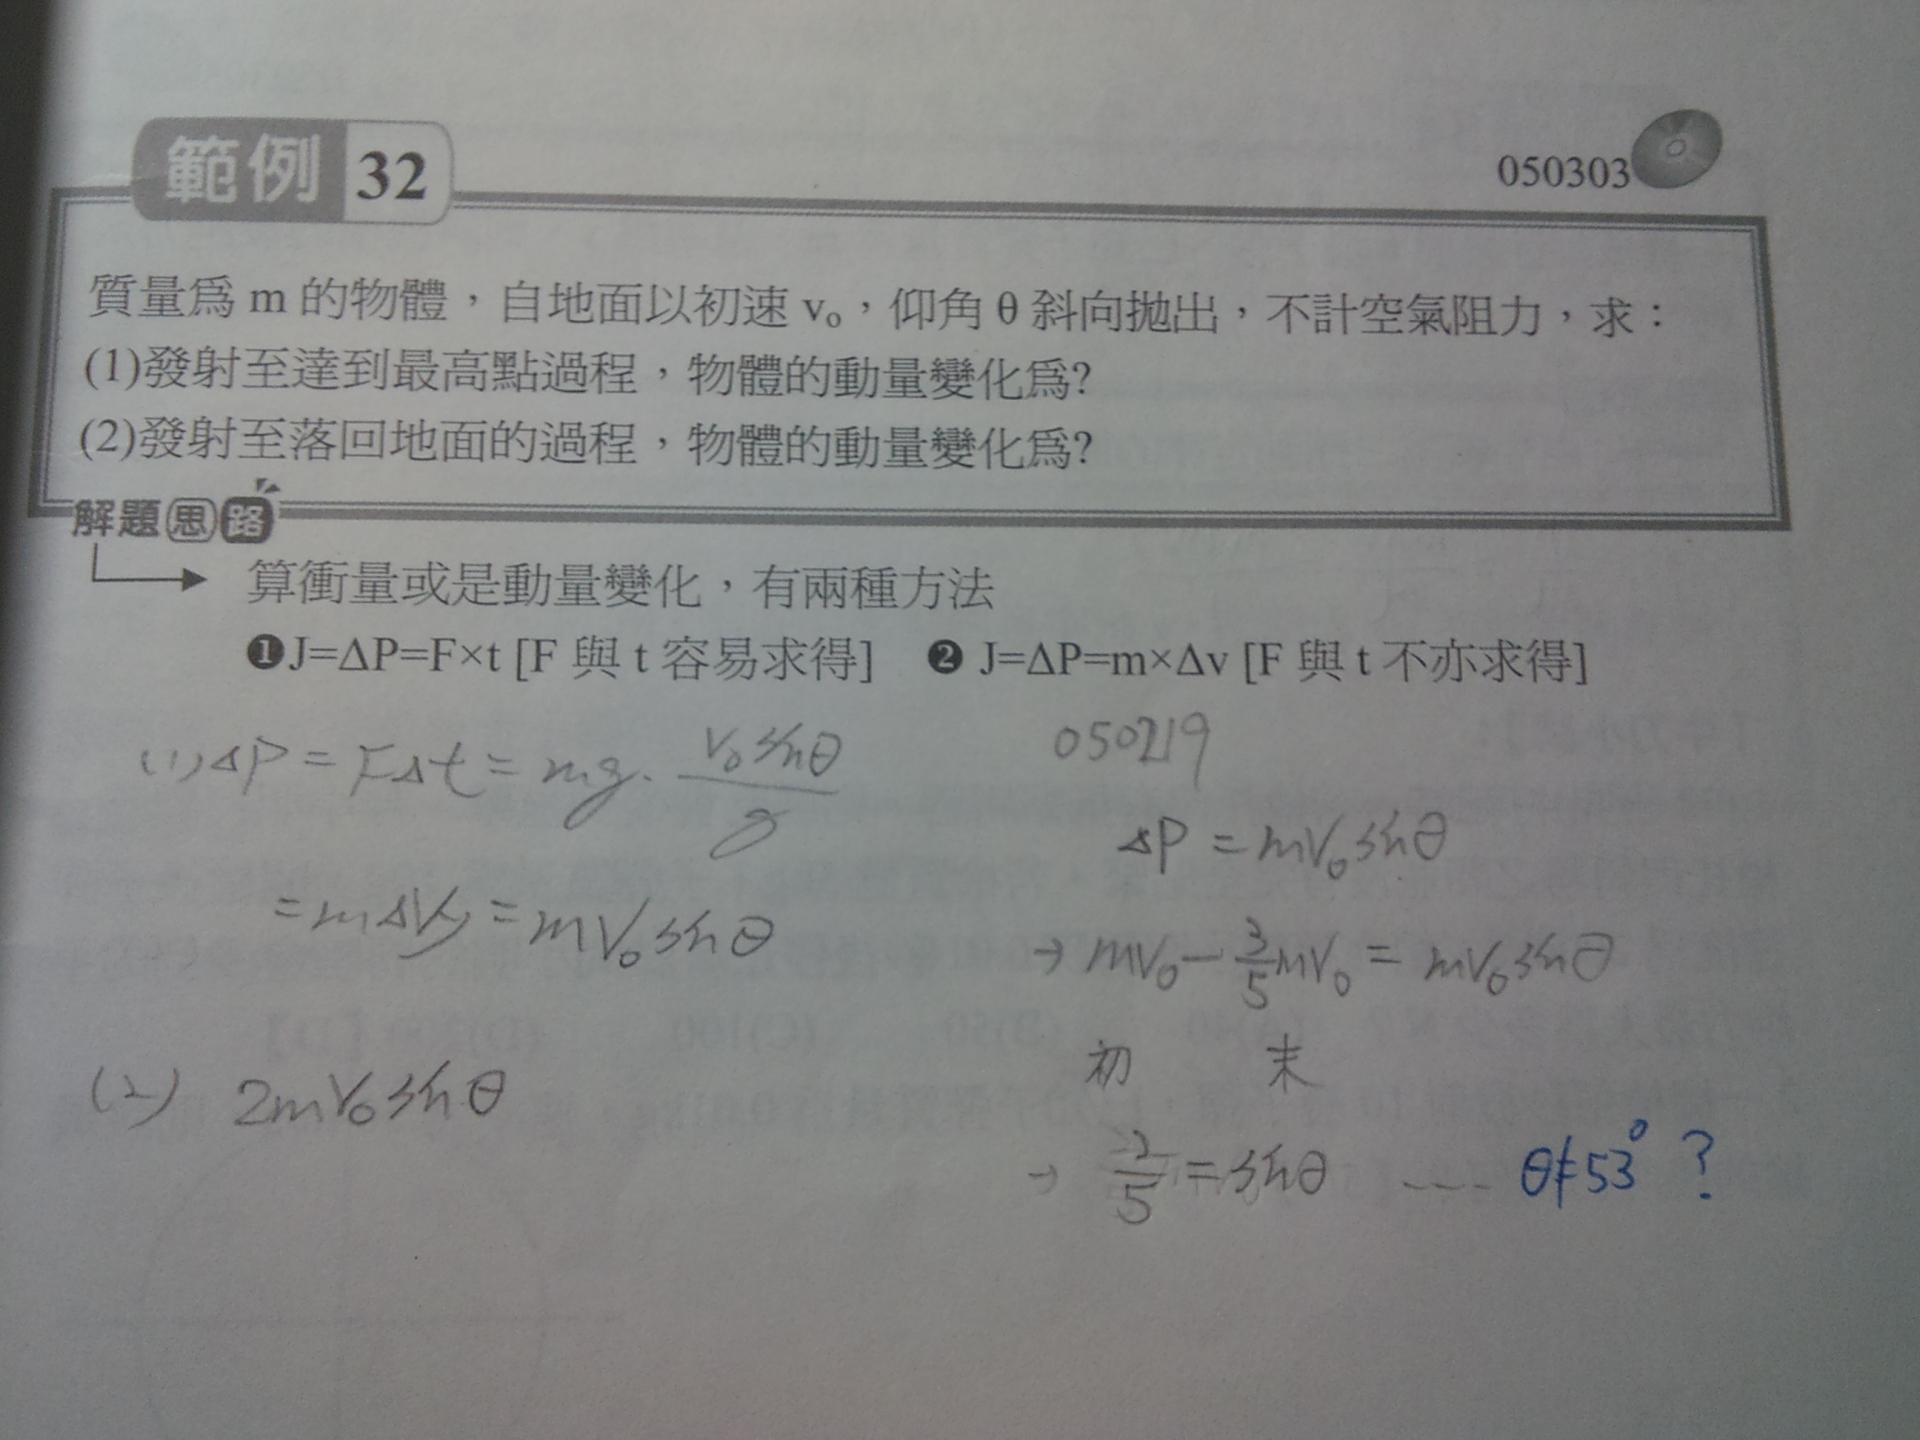 範例 32
050303
質量為 m 的物體，自地面以初速 v₀，仰角 θ 斜向拋出，不計空氣阻力，求：
(1)發射至達到最高點過程，物體的動量變化為?
(2)發射至落回地面的過程，物體的動量變化為?
解題思路
算衝量或是動量變化，有兩種方法
❶J=ΔP=F×t [F 與 t 容易求得] ❷ J=ΔP=m×Δv [F 與 t 不亦求得]
(1) ΔP = FΔt = mg · v₀sinθ/g
= mΔVy = mV₀sinθ
(2) 2mV₀sinθ
050219
ΔP = mV₀sinθ
→ mV₀ − 3/5 mV₀ = mV₀sinθ
初 末
→ 2/5 = sinθ ---- θ≠53° ?